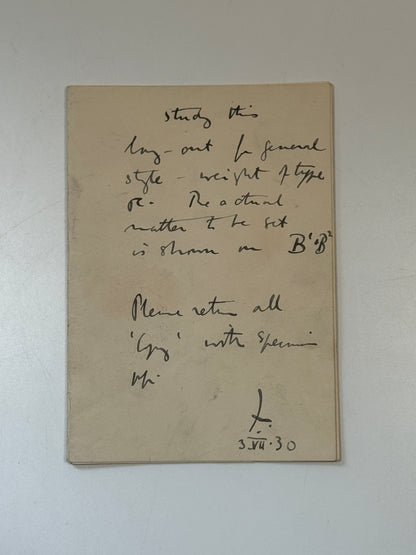 Study this
lay-out for general
style - weight of type
etc. The actual
matter to be set
is shown on B¹ & B²
Please return all
'Copy' with specimen
pp.
3.VII.30